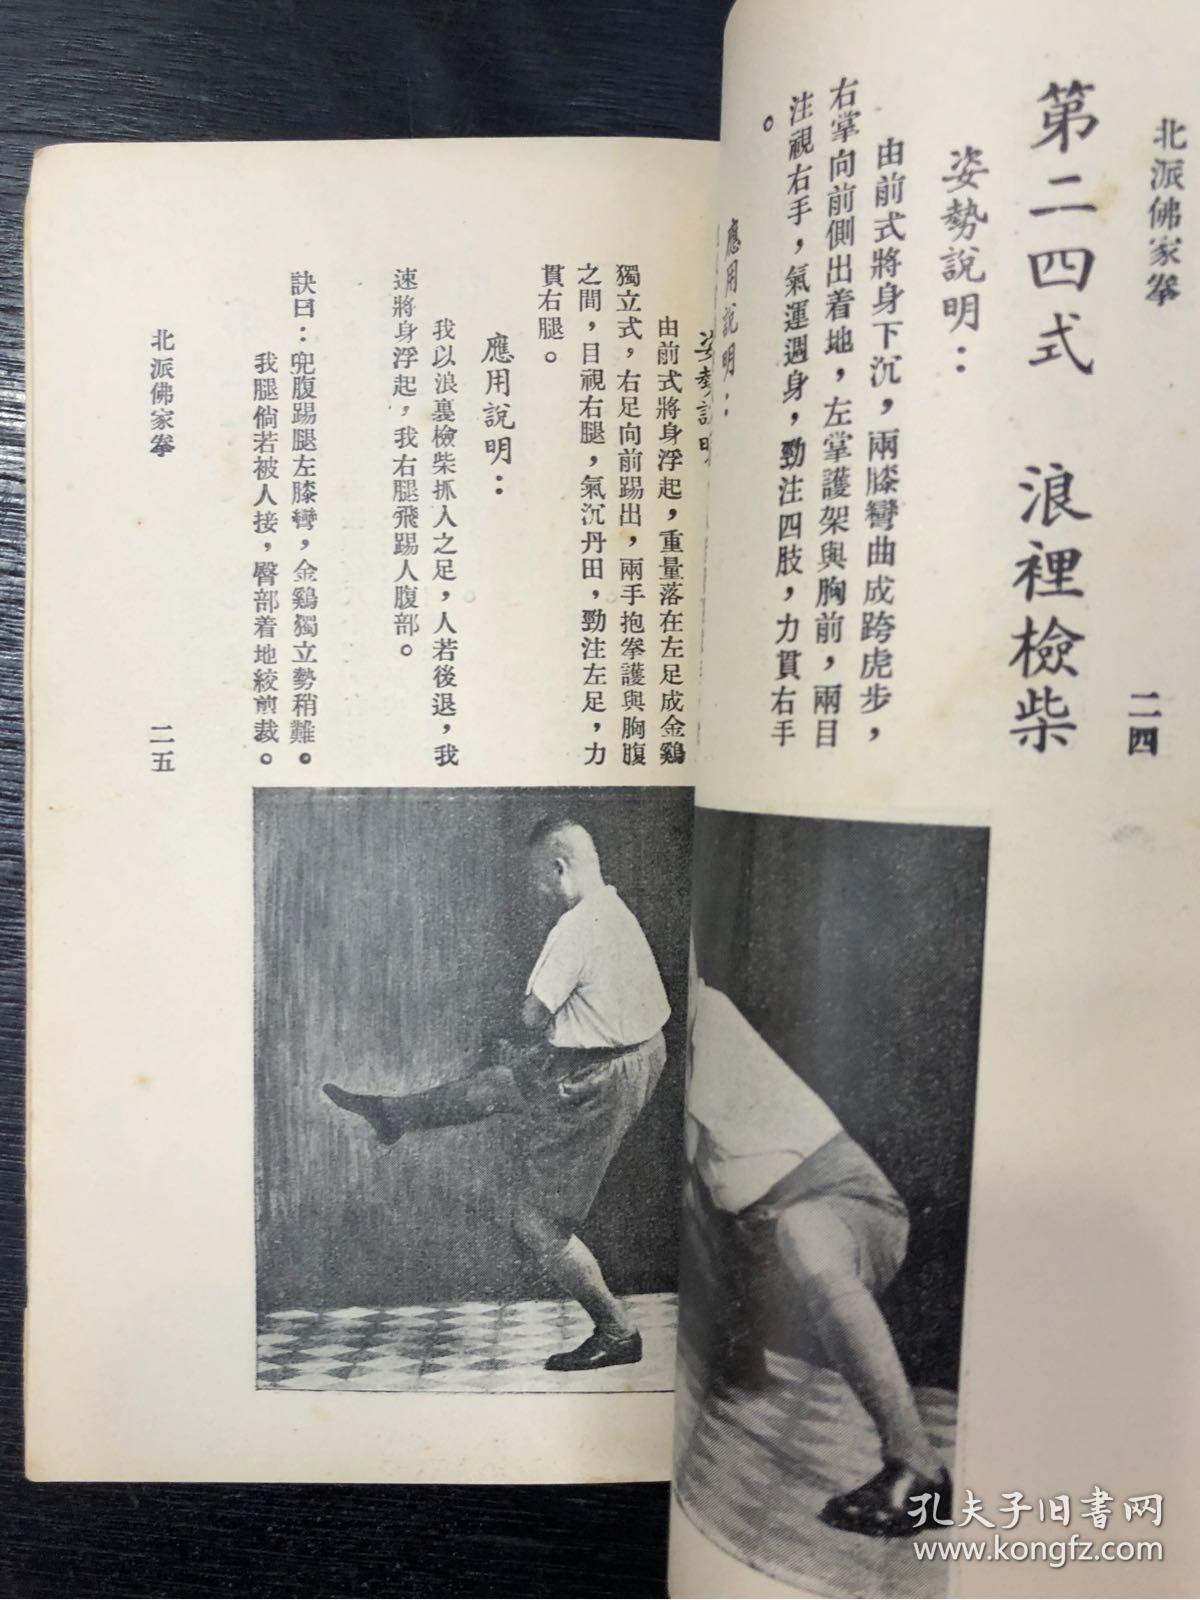 北派佛家拳
二四
第二四式　浪裡檢柴
姿勢說明：
由前式將身下沉，兩膝彎曲成跨虎步，
右掌向前側出着地，左掌護架與胸前，兩目
注視右手，氣運週身，勁注四肢，力貫右手
。
應用說明：
姿勢說明
由前式將身浮起，重量落在左足成金鷄
獨立式，右足向前踢出，兩手抱拳護與胸腹
之間，目視右腿，氣沉丹田，勁注左足，力
貫右腿。
應用說明：
我以浪裏檢柴抓人之足，人若後退，我
速將身浮起，我右腿飛踢人腹部。
訣曰：兜腹踢腿左膝彎，金鷄獨立勢稍難。
我腿倘若被人接，臀部着地絞剪裁。
北派佛家拳
二五
孔夫子旧书网
www.kongfz.com